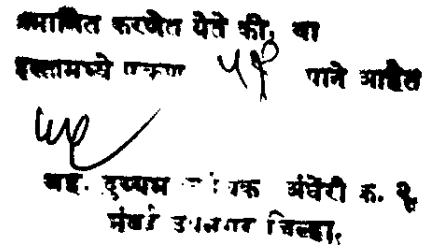 प्रमाणित करणेत येते की, या
दस्तामध्ये एकूण ५९ पाने आहेत
सह. दुय्यम निबंधक अंधेरी क्र. २
मुंबई उपनगर जिल्हा.